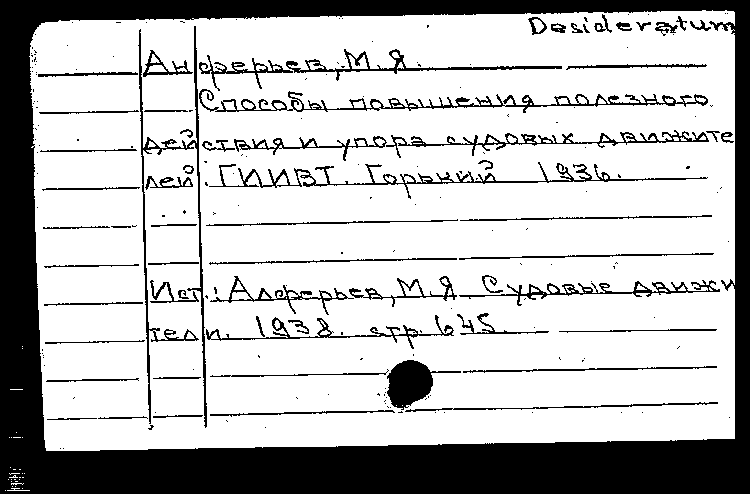 Desideratum
Анферьев, М.Я.
Способы повышения полезного
действия и упора судовых движите
лей. ГИИВТ. Горький 1936.
Ист.: Алферьев, М.Я. Судовые движи
тели. 1938. стр. 645.